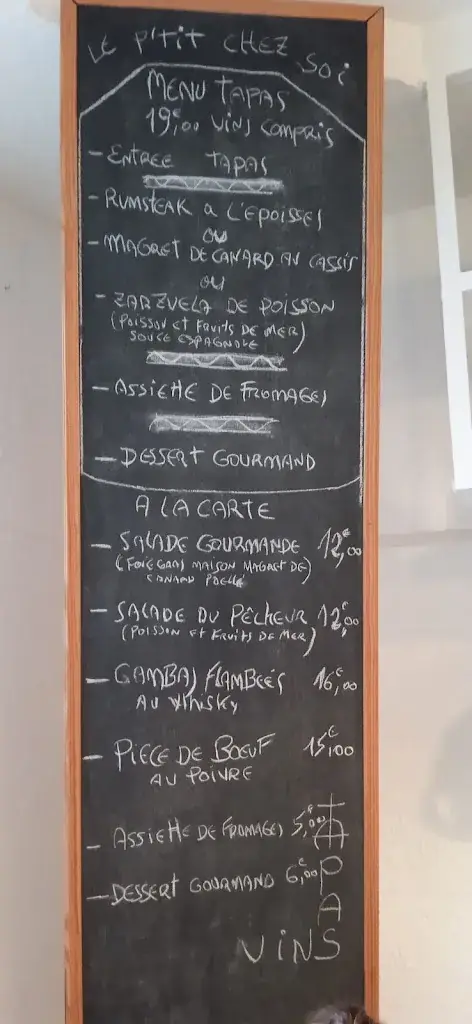 LE P'TIT CHEZ SOI
MENU TAPAS
19€,00 VINS COMPRIS
- ENTREE TAPAS
- RUMSTEAK A L'EPOISSES
OU
- MAGRET DE CANARD AU CASSIS
OU
- ZARZUELA DE POISSON
(POISSON ET FRUITS DE MER)
SOUSE ESPAGNOLE
- ASSIETTE DE FROMAGES
- DESSERT GOURMAND
A LA CARTE
- SALADE GOURMANDE 12€,00
(FOIE GRAS MAISON MAGRET DE)
CANARD POELÉ
- SALADE DU PÊCHEUR 12€,00
(POISSON ET FRUITS DE MER)
- GAMBAS FLAMBEÉS 16€,00
AU WHISKY
- PIECE DE BOEUF 15€,00
AU POIVRE
- ASSIETTE DE FROMAGES 5,00€
- DESSERT GOURMAND 6€,00
P
A
VINS